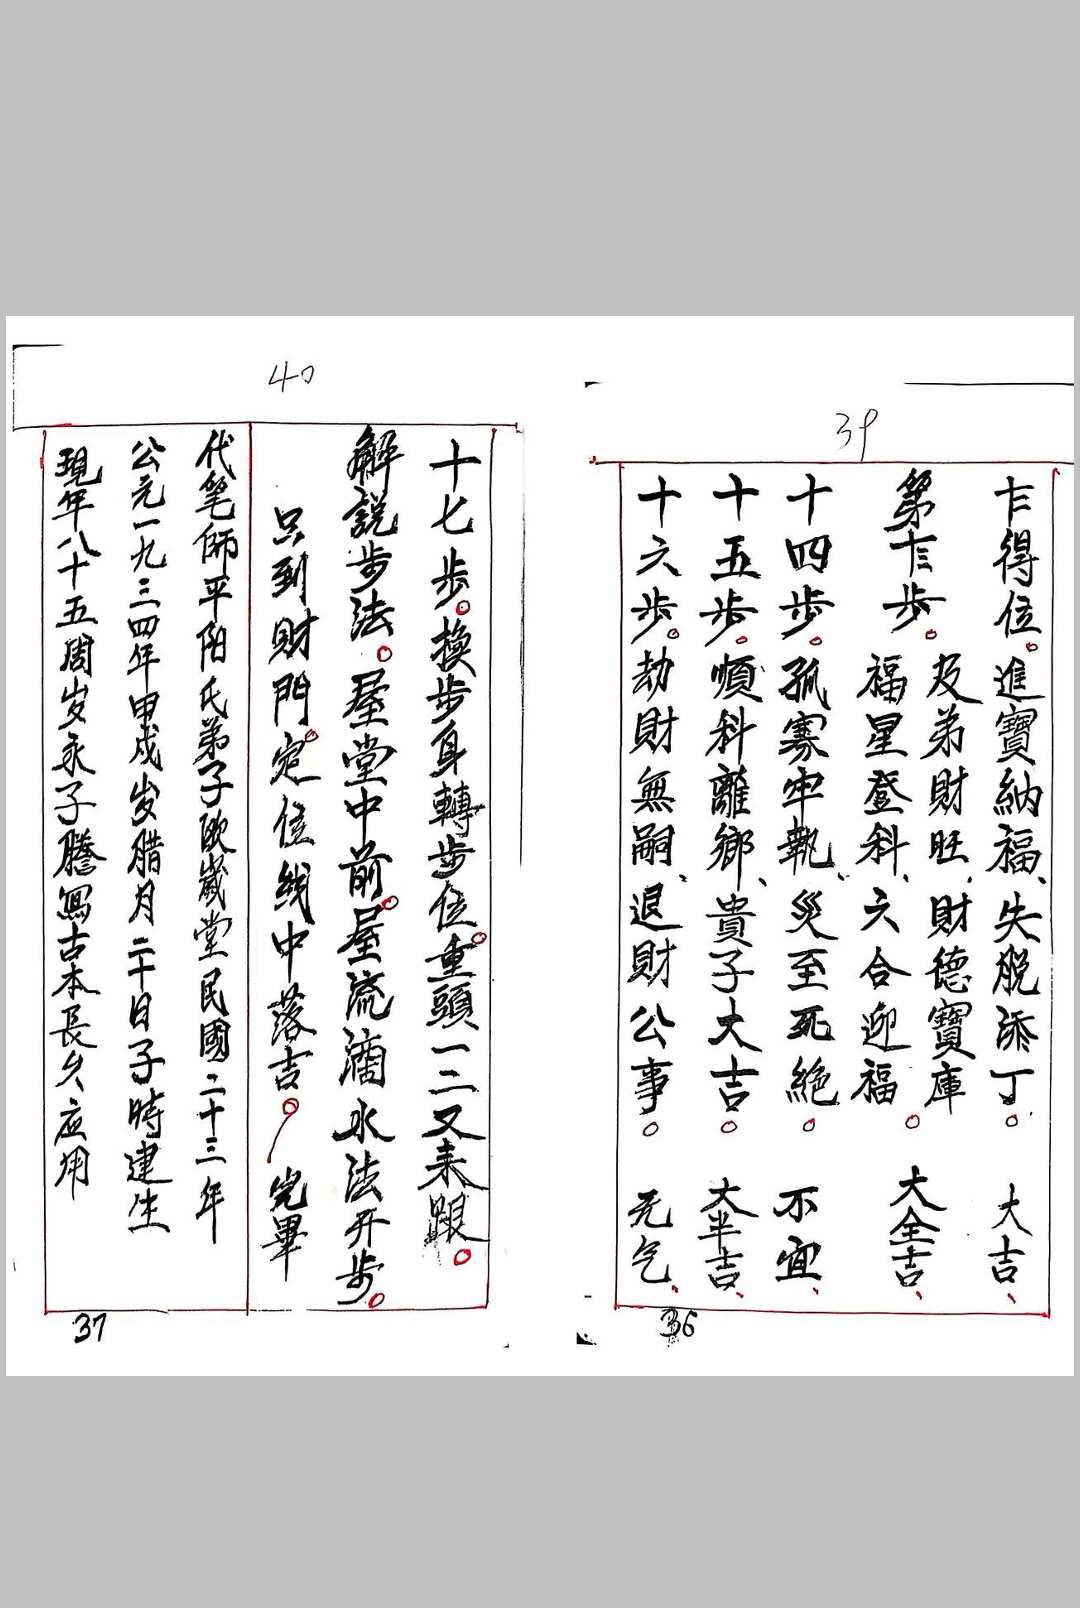 39
得位。進寶納福、失脱添丁。大吉、
第十三步。及弟財旺、財德寶庫
福星登科、六合迎福。大全吉、
十四步。孤寡牢執、災至死絶。不宜、
十五步。順科離鄉、貴子大吉。大半吉、
十六步。劫財無嗣、退財公事。无气、
36
40
十七步。換步身轉步位。重頭一二又来跟。
解説步法。屋堂中前。屋流滴水法开步。
只到財門。定位线中落吉。完畢
代笔師平阳氏弟子欧歲堂民國二十三年
公元一九三四年甲戌岁腊月二十日子時建生
現年八十五周岁永子謄寫古本長久应用
37